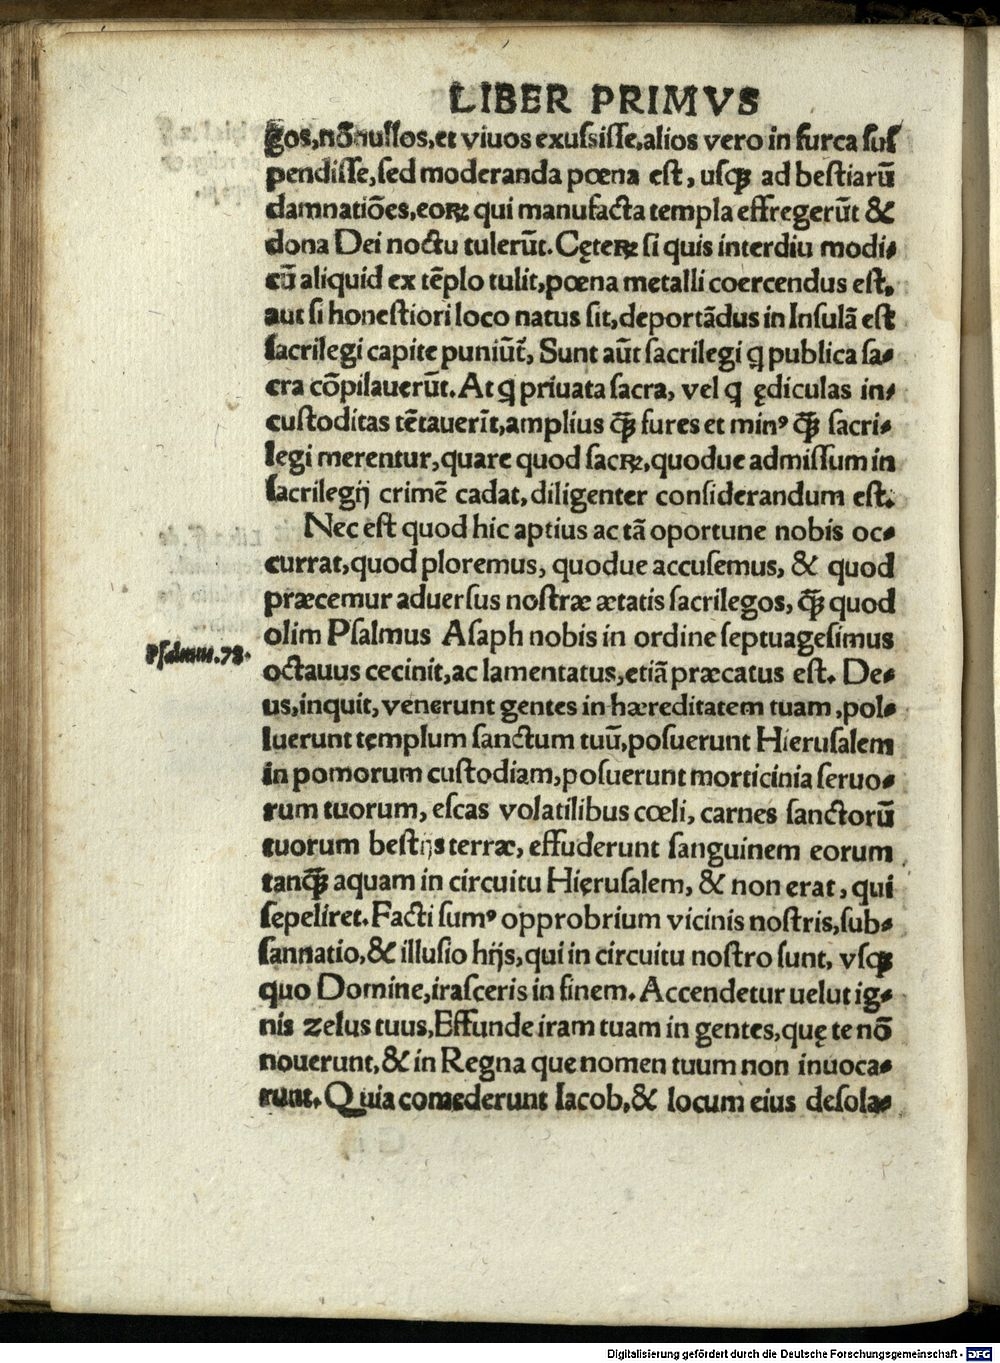 LIBER PRIMVS
gos,nõnullos,et viuos exussisse,alios vero in furca sus
pendisse,sed moderanda pœna est, usqꝫ ad bestiarũ
damnatiões,eoꝝ qui manufacta templa effregerũt &
dona Dei noctu tulerũt. Cęteꝝ si quis interdiu modi-
cũ aliquid ex tẽplo tulit,pœna metalli coercendus est.
aut si honestiori loco natus sit,deportãdus in Insulã est
sacrilegi capite puniũt, Sunt aũt sacrilegi q̃ publica sa-
cra cõpilauerũt. At q̃ priuata sacra, vel q̃ ędiculas in-
custoditas tẽtauerĩt,amplius q̃ꝫ fures et minꝰ q̃ꝫ sacri-
legi merentur,quare quod sacꝝ,quodue admissum in
sacrilegij crimẽ cadat,diligenter considerandum est.
Nec est quod hic aptius ac tã oportune nobis oc-
currat,quod ploremus, quodue accusemus, & quod
præcemur aduersus nostræ ætatis sacrilegos, q̃ꝫ quod
olim Psalmus Asaph nobis in ordine septuagesimus
Psalmus.78.
octauus cecinit,ac lamentatus,etiã præcatus est. De-
us,inquit, venerunt gentes in hæreditatem tuam,pol-
luerunt tęmplum sanctum tuũ,posuerunt Hierusalem
in pomorum custodiam,posuerunt morticinia seruo-
rum tuorum, escas volatilibus cœli, carnes sanctorũ
tuorum bestijs terræ, effuderunt sanguinem eorum
tanq̃ꝫ aquam in circuitu Hięrusalem, & non erat, qui
sepeliret. Facti sumꝰ opprobrium vicinis nostris,sub-
sannatio,& illusio hijs, qui in circuitu nostro sunt, vsqꝫ
quo Domine,irasceris in finem. Accendetur uelut ig-
nis zelus tuus,Effunde iram tuam in gentes,quę te nõ
nouerunt,& in Regna que nomen tuum non inuoca-
runt. Quia comederunt Iacob,& locum eius desola-
Digitalisierung gefördert durch die Deutsche Forschungsgemeinschaft - DFG